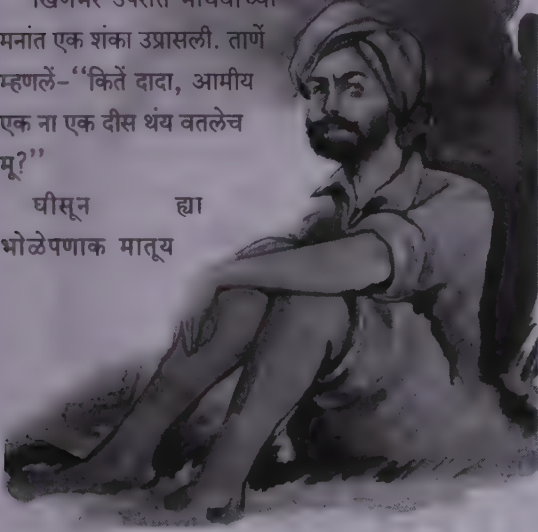 खिणभर उपरांत माधवाच्या
मनांत एक शंका उप्रासली. ताणें
म्हणलें–“कितें दादा, आमीय
एक ना एक दीस थंय वतलेच
मू?”
घीसून ह्या
भोळेपणाक मातूय